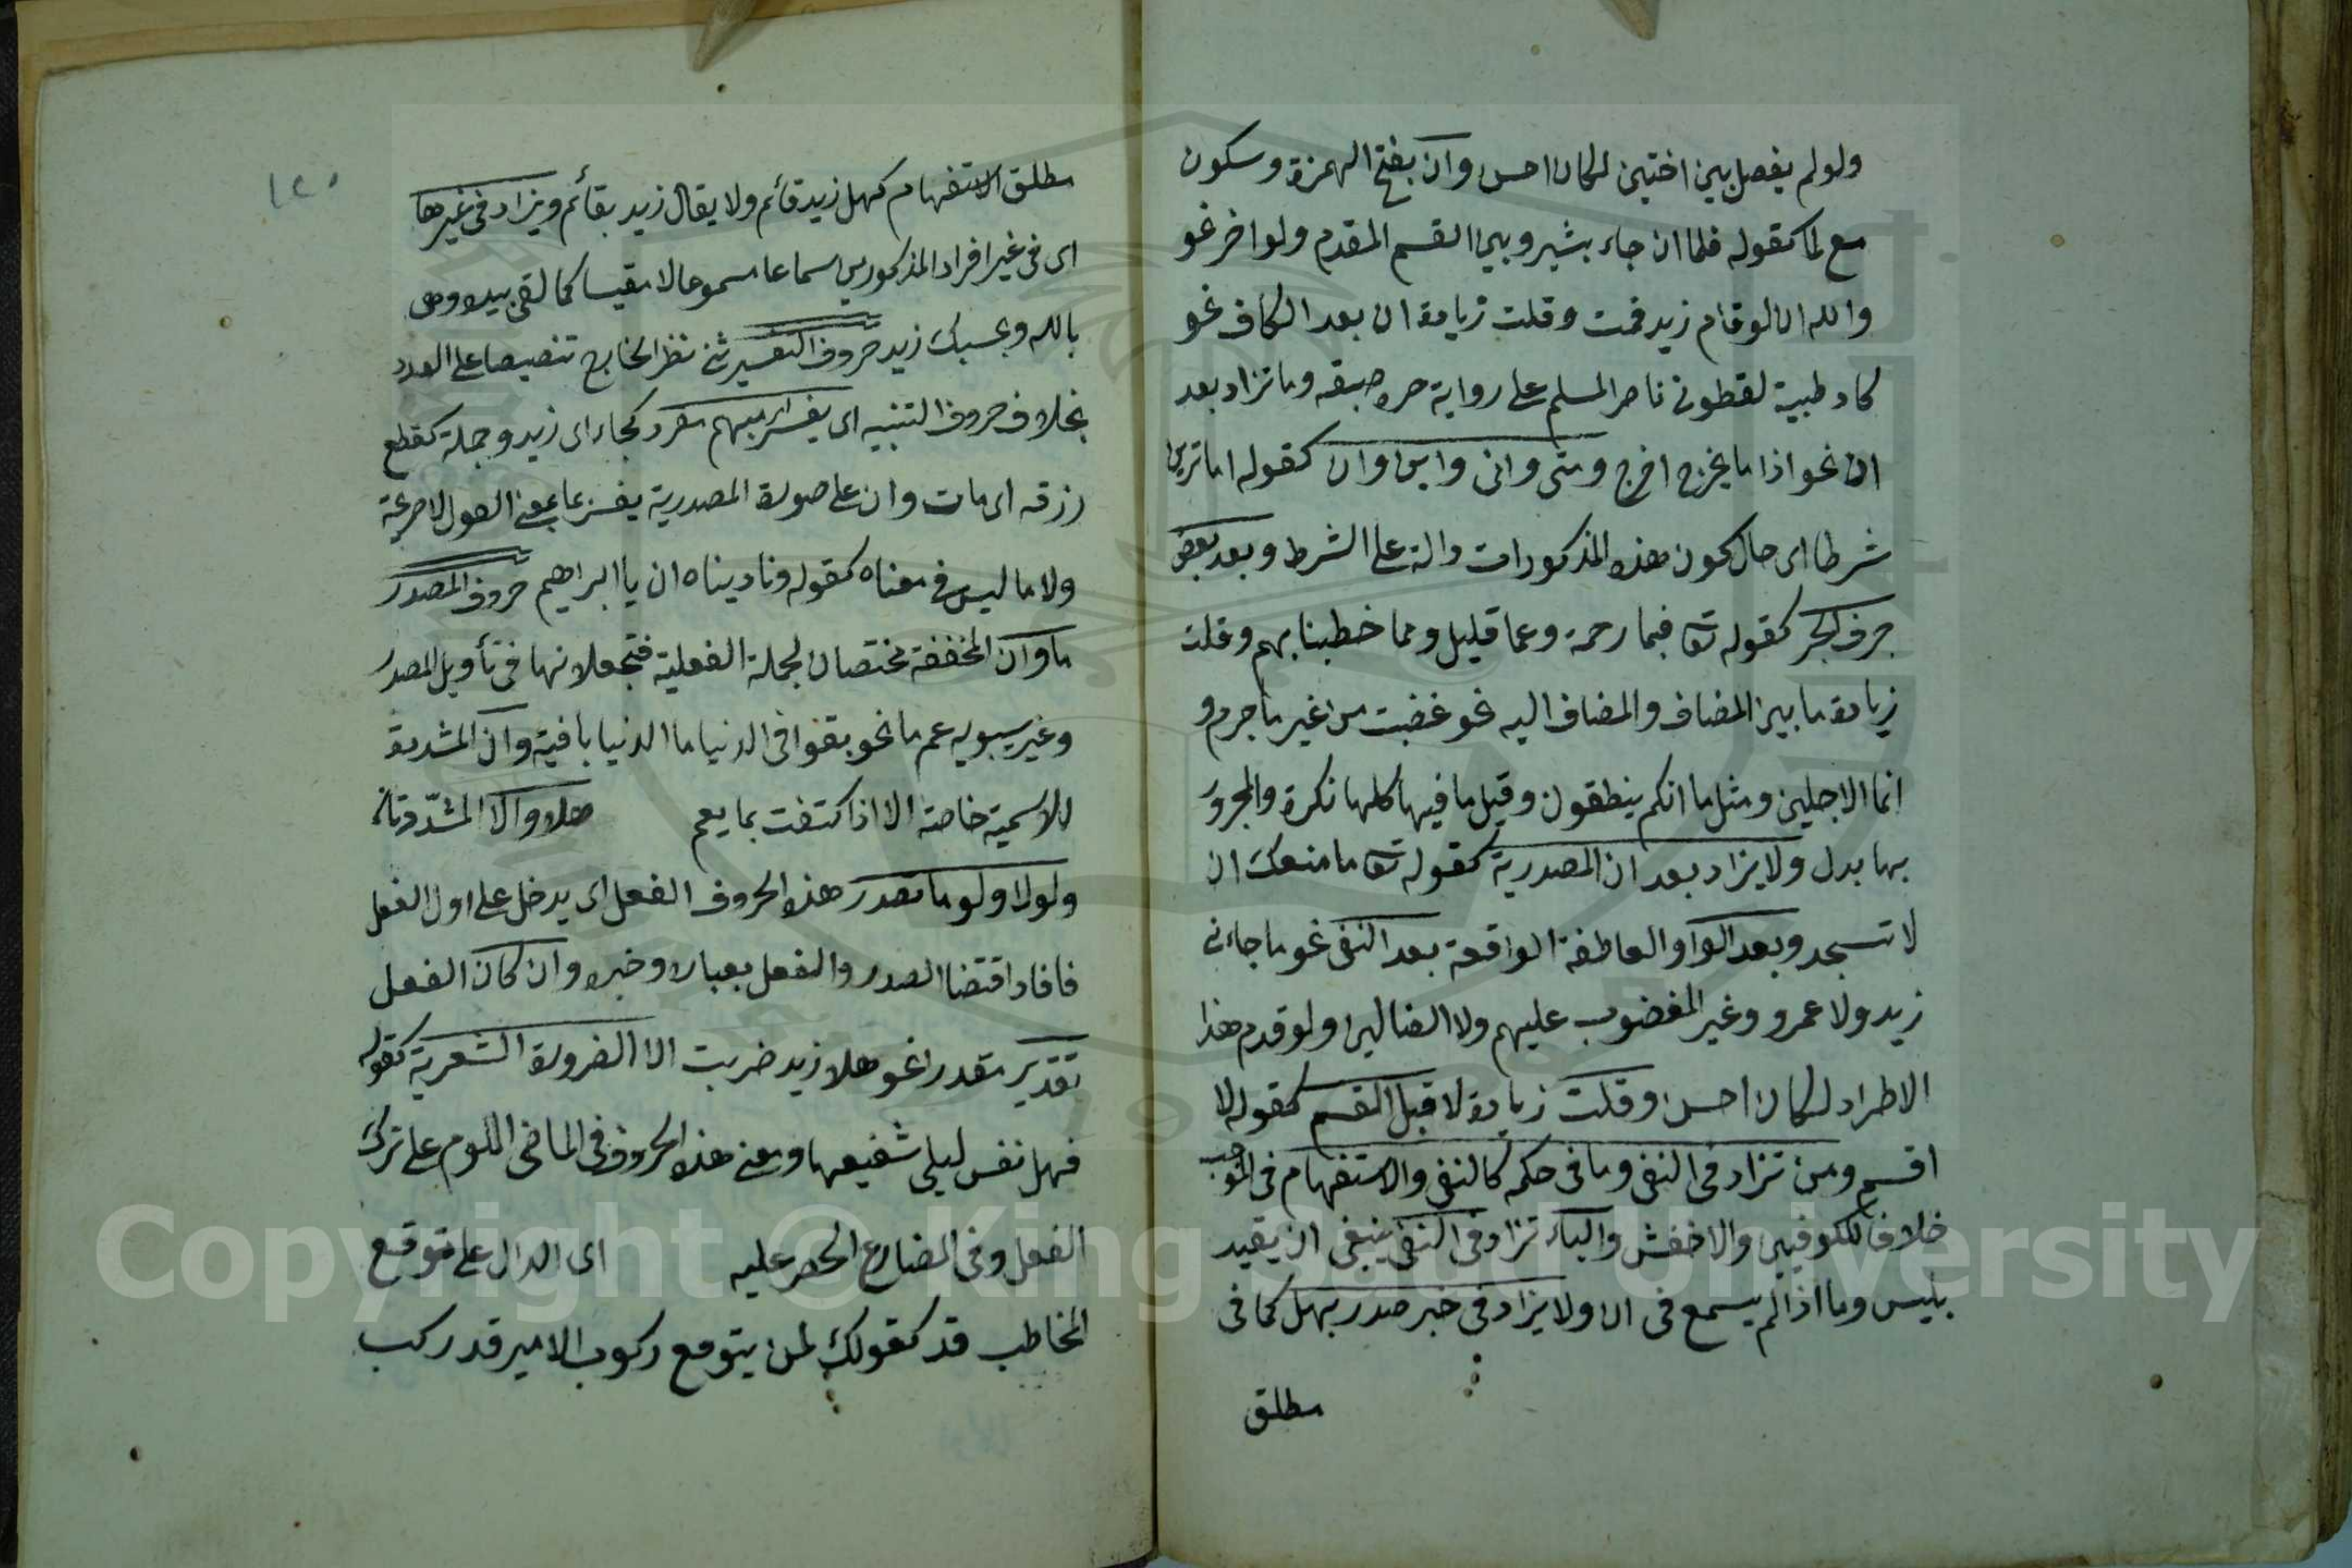 ولو لم يفصل بين اختين لكان احسن وان بفتح الهمزة وسكون
مع لما كقوله فلما ان جاء بشير وبين القسم المقدم ولو اخر نحو
والله ان لو قام زيد قمت وقلت زيادة ان بعد الكاف نحو
كان ظبية تعطو الى ناضر السلم على رواية وما تزاد بعد
اذا نحو اذا ما يخرج اخرج ومتى وانى واين وان كقوله اما ترين
شرطا اى حال كون هذه المذكورات دالة على الشرط وبعد بعض
حرف الجر كقوله تعا فبما رحمة وعما قليل ومما خطيئاتهم وقلت
زيادة ما بين المضاف والمضاف اليه نحو غضبت من غير ما جرم و
ايما الاجلين ومثل ما انكم ينطقون وقيل ما فيها كلها نكرة والمجرور
بها بدل ولا يزاد بعد ان المصدرية كقوله تعا ما منعك ان
لا تسجد وبعد الواو العاطفة الواقعة بعد النفى نحو ما جاءنى
زيد ولا عمرو وغير المغضوب عليهم ولا الضالين ولو قدم هذا
الاطراد لكان احسن وقلت زيادة لا قبل القسم كقوله لا
اقسم ومن تزاد فى النفى وما فى حكمه كالنفى والاستفهام فى الموجب
خلافا للكوفيين والاخفش والباء تزاد فى النفى ينبغى ان يقيد
بليس وما اذا لم يسمع فى ان ولا يزاد فى خبر صدر بهل كما فى
مطلق
١٢٠
مطلق الاستفهام كهل زيد قائم ولا يقال زيد بقائم ويزاد فى غيرها
اى فى غير افراد المذكورين سماعا مسموحا لا مقيسا كما لقى بيده وكفى
بالله وبحسبك زيد حروف التفسير ثنى نظر الخارج تنصيصا على العدد
بخلاف حروف التنبيه اى يفسر لمبهم مفرد كجاء اى زيد وجملة كقطع
رزقه اى مات وان على صورة المصدرية يفسر بما بمعنى القول لا صريحة
ولا ما ليس فى معناه كقوله وناديناه ان يا ابراهيم حروف المصدر
ما وان المخففة مختصان لجملة الفعلية فتجعلانها فى تأويل المصدر
وغير سيبويه عم ما نحو بقوا فى الدنيا ما الدنيا باقية وان المشددة
للاسمية خاصة الا اذا كتفت بما يعم هلا والا المشددتان
ولولا ولوما تصدر هذه الحروف الفعل اى يدخل على اول الفعل
فافاد اقتضا الصدر والفعل بعباره وخبره وان كان الفعل
تقدير مقدرا نحو هلا زيد ضربت الا الضرورة الشعرية كقوله
فهل نفس ليلى شفيعها ومعنى هذه الحروف فى الماضى اللوم على ترك
الفعل وفى المضارع الحصر عليه اى الدال على توقع
المخاطب قد كقولك لمن يتوقع ركوب الامير قد ركب
Copyright © King Saud University